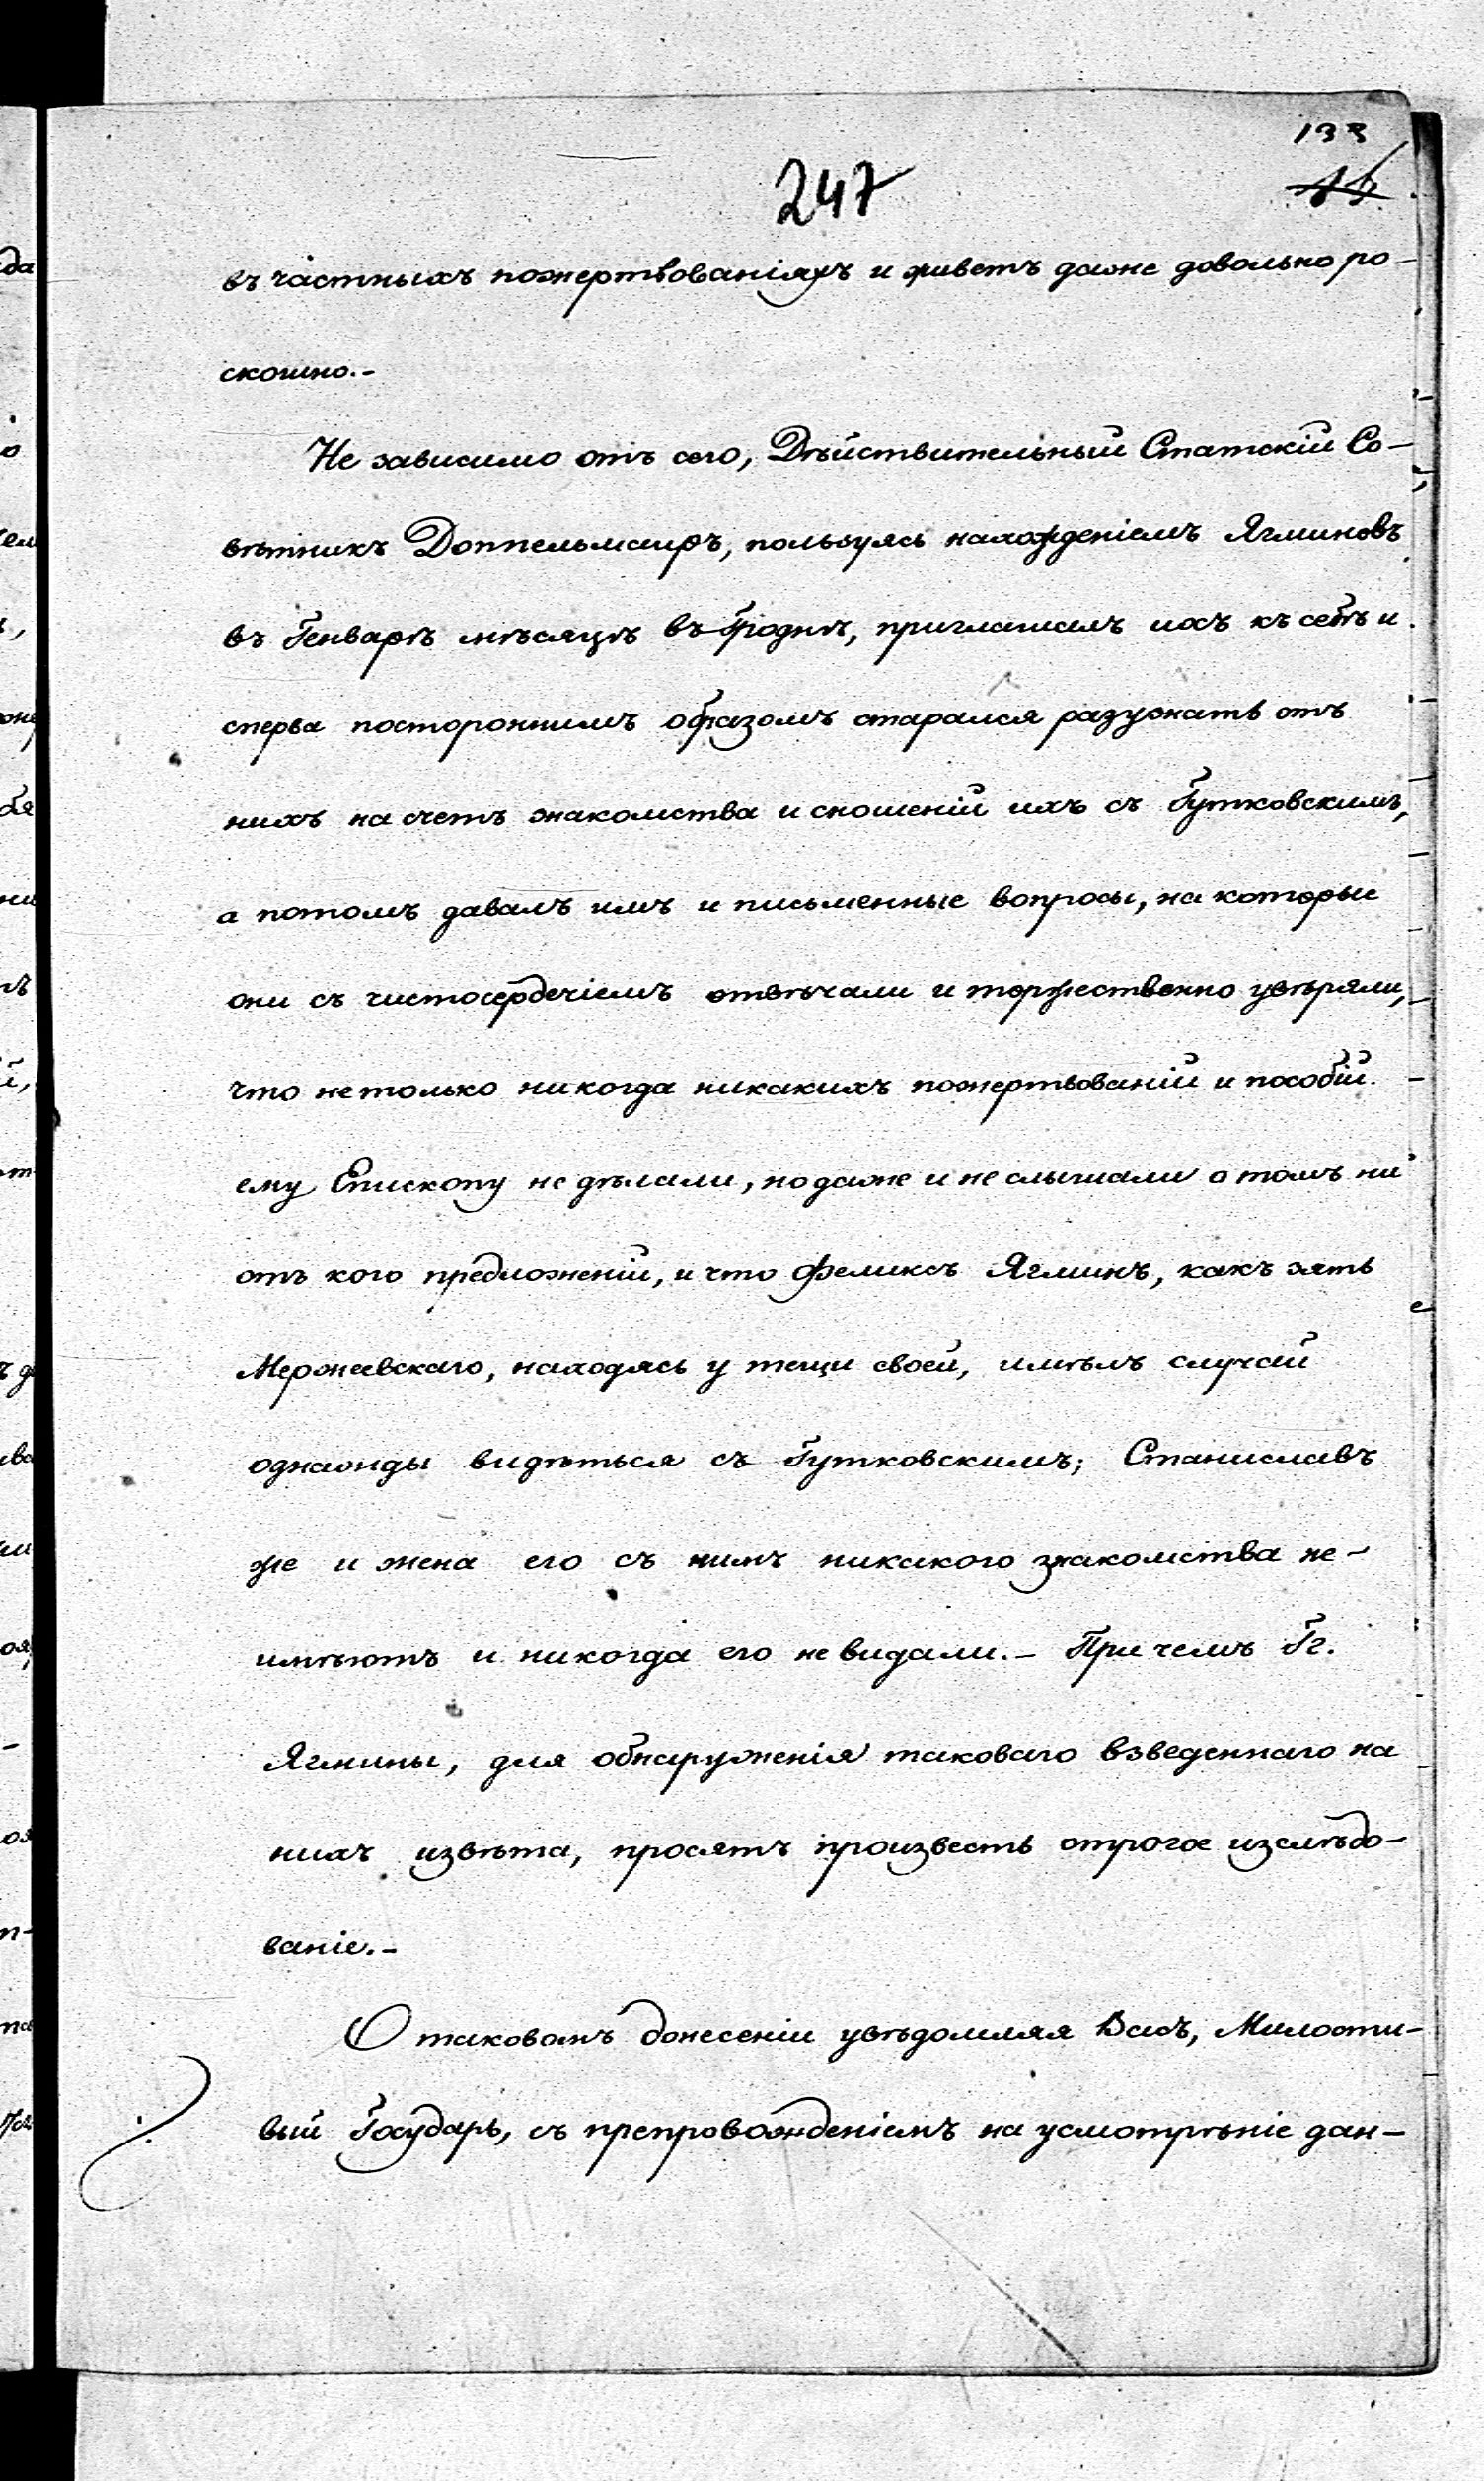 133
247
въ частныхъ пожертвованіяхъ и живетъ даже довольно ро-
скошно.-
Не зависимо отъ сего, Дѣйствительный Статскій Со-
вѣтникъ Доппельмаиръ, пользуясь нахожденіемъ Ягминовъ
въ Генварѣ мѣсяцѣ въ Гроднѣ, приглашалъ ихъ къ себѣ и
сперва постороннимъ образомъ старался разузнать отъ
нихъ на счетъ знакомства и сношеній ихъ съ Гутковскимъ,
а потомъ давалъ имъ и письменные вопросы, на которые
они съ чистосердечіемъ отвѣчали и торжественно увѣряли,
что не только никогда никакихъ пожертвованій и пособій
ему Епископу не дѣлали, но даже и не слышали о томъ ни
отъ кого предложеній, и что Феликсъ Ягминъ, какъ зять
Мержеевскаго, находясь у тещи своей, имѣлъ случай
однажды видѣться съ Гутковскимъ; Станиславъ
же и жена его съ нимъ никакого знакомства не-
имѣютъ и никогда его не видали.- При чемъ Гг.
Ягмины, для обнаруженія таковаго взведеннаго на
нихъ извѣта, просятъ произвесть строгое изслѣдо-
ваніе.-
О таковомъ донесеніи увѣдомляя Васъ, Милости-
вый Государь, съ препровожденіемъ на усмотрѣніе дан-